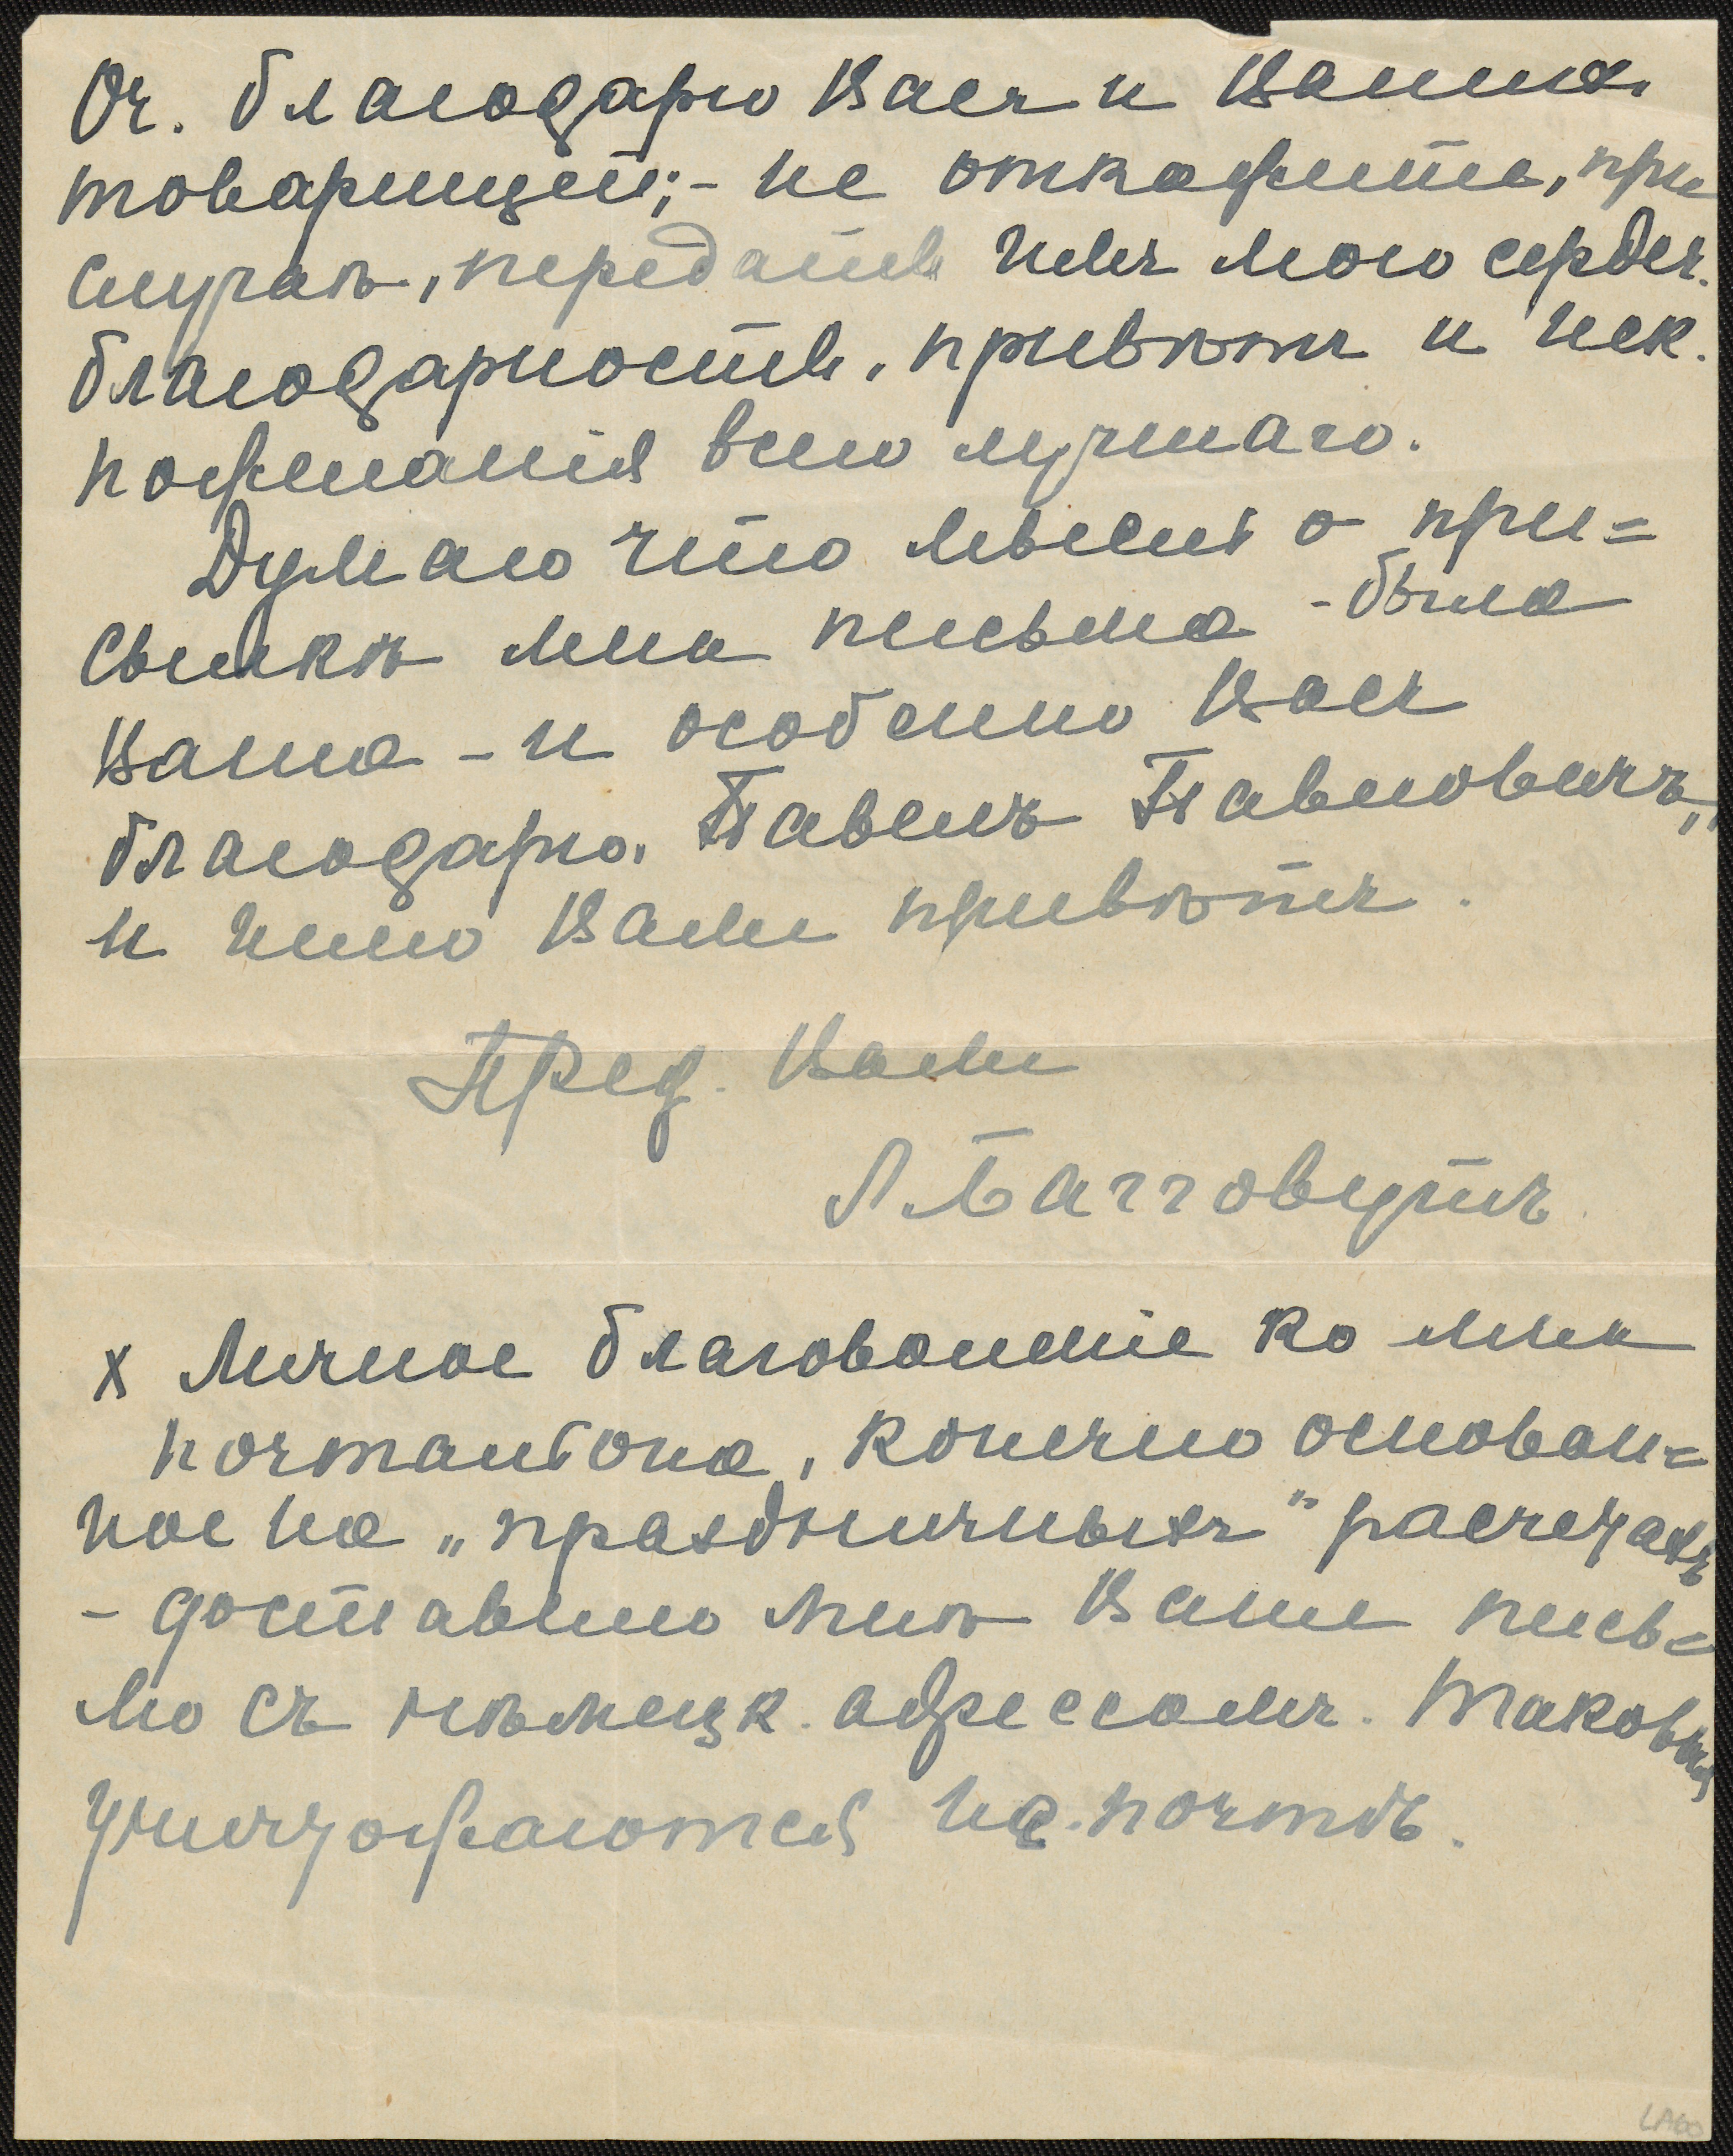 Оч. благодарю Васъ и Вашихъ
товарищей;- не откажите, при
случаѣ, передать имъ мою сердеч.
благодарность, привѣтъ и иск.
пожеланія всего лучшаго.
Думаю что мысль о при=
сылкѣ мнѣ письма - была
Ваша - и особенно Васъ
благодарю, Павелъ Павловичъ,
и шлю Вамъ привѣтъ.
Пред. Вамъ
А. Багговутъ
х Личное благоволеніе ко мнѣ
почтальона, конечно основан=
ное на „праздничныхъ" расчетахъ
- доставило мнѣ Ваше пись=
мо съ нѣмецк. адрессомъ. Таковыя
уничтожаются на почтѣ.